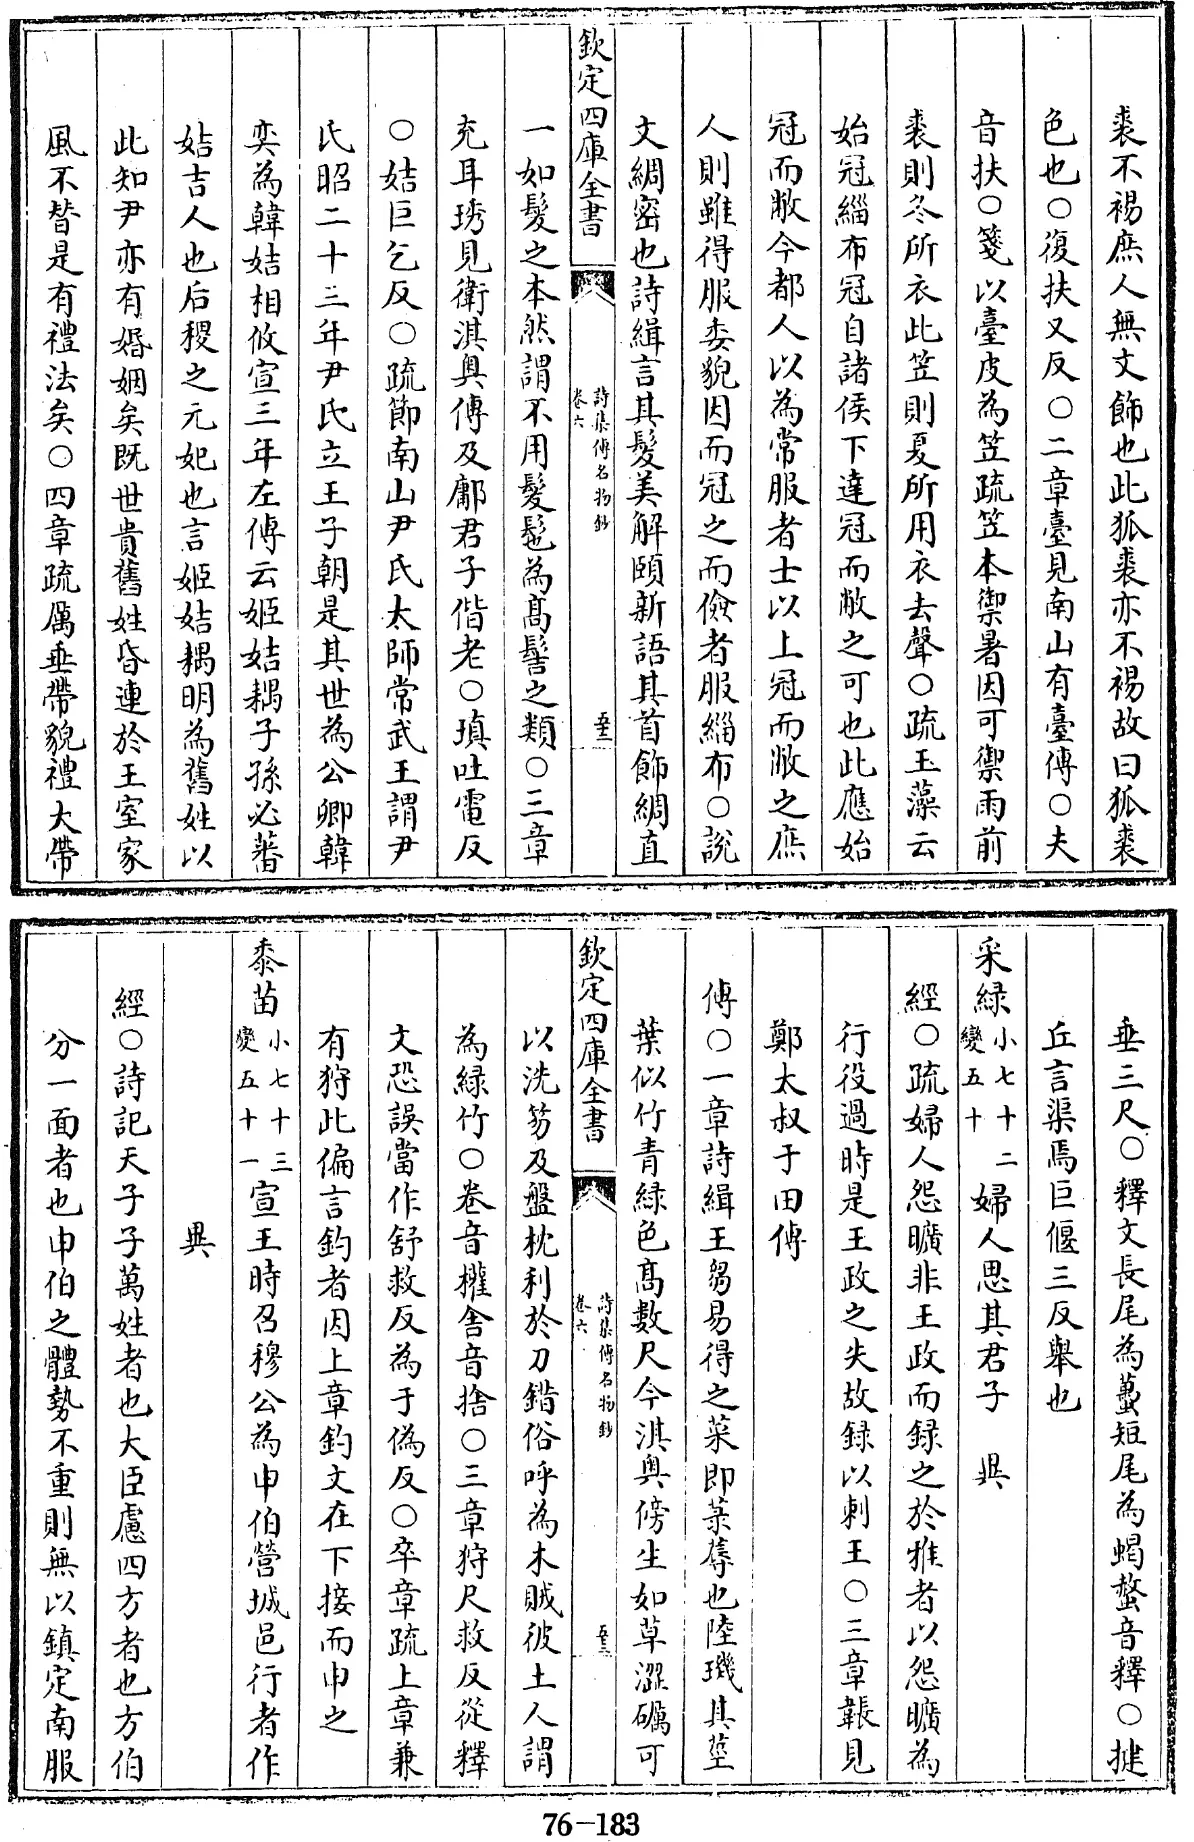 裘不裼庶人無文飾也此狐裘亦不裼故曰狐裘
色也○復扶又反○二章臺見南山有臺傳○夫
音扶○箋以臺皮為笠疏笠本禦暑因可禦雨前
裘則冬所衣此笠則夏所用衣去聲○疏玉藻云
始冠緇布冠自諸侯下達冠而敝之可也此應始
冠而敝今都人以為常服者士以上冠而敝之庶
人則雖得服委貌因而冠之而儉者服緇布○說
文綢密也詩緝言其髮美解頤新語其首飾綢直
欽定四庫全書
詩集傳名物鈔
卷六
五十二
一如髮之本然謂不用髲髢為高髻之類○三章
充耳琇見衛淇奧傳及鄘君子偕老○瑱吐電反
○姞巨乞反○疏節南山尹氏太師常武王謂尹
氏昭二十三年尹氏立王子朝是其世為公卿韓
奕為韓姞相攸宣三年左傳云姬姞耦子孫必蕃
姞吉人也后稷之元妃也言姬姞耦明為舊姓以
此知尹亦有婚姻矣既世貴舊姓昏連於王室家
風不替是有禮法矣○四章疏厲垂帶貌禮大帶
垂三尺○釋文長尾為蠆短尾為蝎螫音釋○揵
丘言渠焉巨偃三反舉也
采緑小七十二變五十婦人思其君子 興
經○疏婦人怨曠非王政而録之於雅者以怨曠為
行役過時是王政之失故録以刺王○三章韔見
鄭太叔于田傳
傳○一章詩緝王芻易得之菜即菉蓐也陸璣其莖
葉似竹青緑色高數尺今淇奧傍生如草澀礪可
欽定四庫全書
詩集傳名物鈔
卷六
五十三
以洗笏及盤枕利於刀錯俗呼為木賊彼土人謂
為緑竹○卷音權舍音捨○三章狩尺救反從釋
文恐誤當作舒救反為于偽反○卒章疏上章兼
有狩此偏言釣者因上章釣文在下接而申之
黍苗小七十三變五十一宣王時召穆公為申伯營城邑行者作
興
經○詩記天子子萬姓者也大臣慮四方者也方伯
分一面者也申伯之體勢不重則無以鎮定南服
76-183